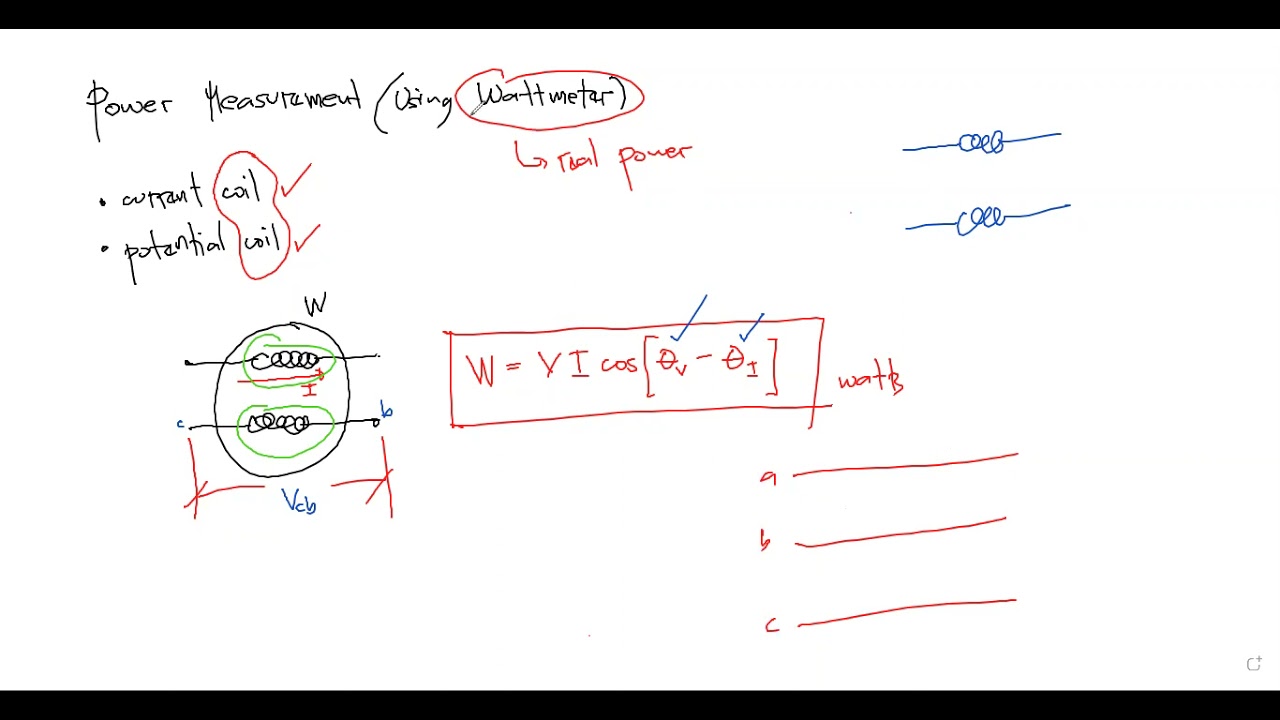 Power Measurement (Using Wattmeter)
↳ real power
• current coil ✓
• potential coil ✓
W
I
c b
Vcb
W = V I cos[θv - θI] watts
a
b
c